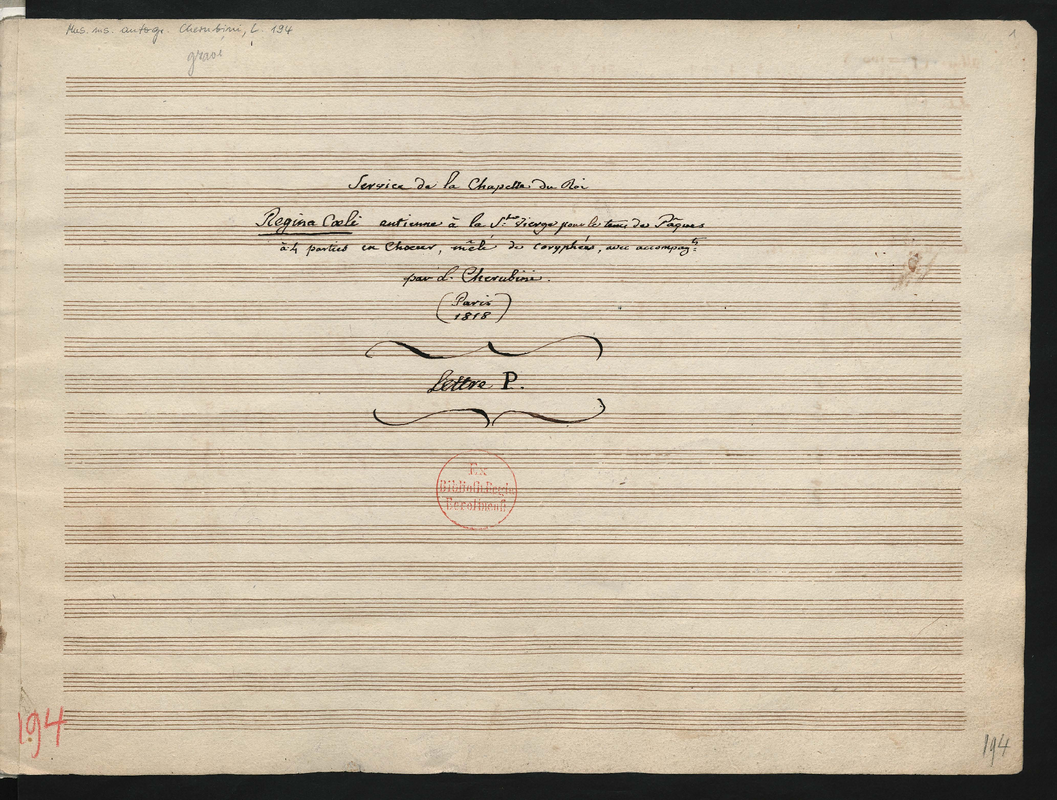 Mus. ms. autogr. Cherubini, L. 194
1
Service de la Chapelle du Roi
Regina Cœli antienne à la Ste Vierge pour le tems de Pâques
à 4 parties en Chœur, mêlé de coryphées, avec accompagt:
par L. Cherubini.
(Paris
1818)
Lettre P.
Ex
Biblioth. Regia
Berolinenſi
194
194